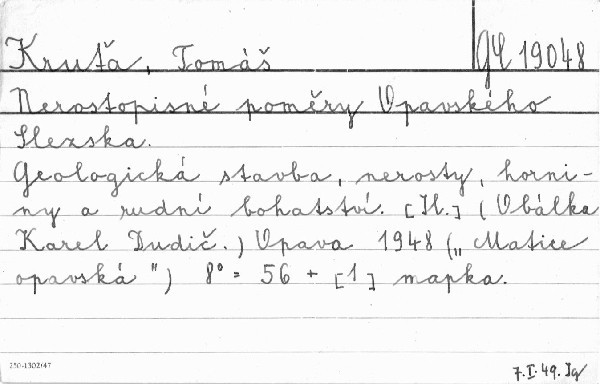 Kruťa, Tomáš
gE 19048
Nerostopisné poměry Opavského
Slezska.
Geologická stavba, nerosty, horni-
ny a rudní bohatství. [Il.] (Obálka
Karel Dudič.) Opava 1948 („Matice
opavská") 8° = 56 + [1] mapka.
250-1302/47
7.I.49.